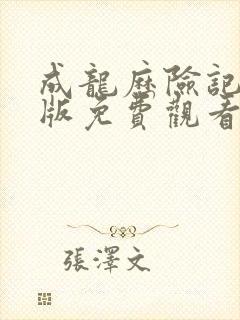 成龍歷險記
版免費觀看
張澤文